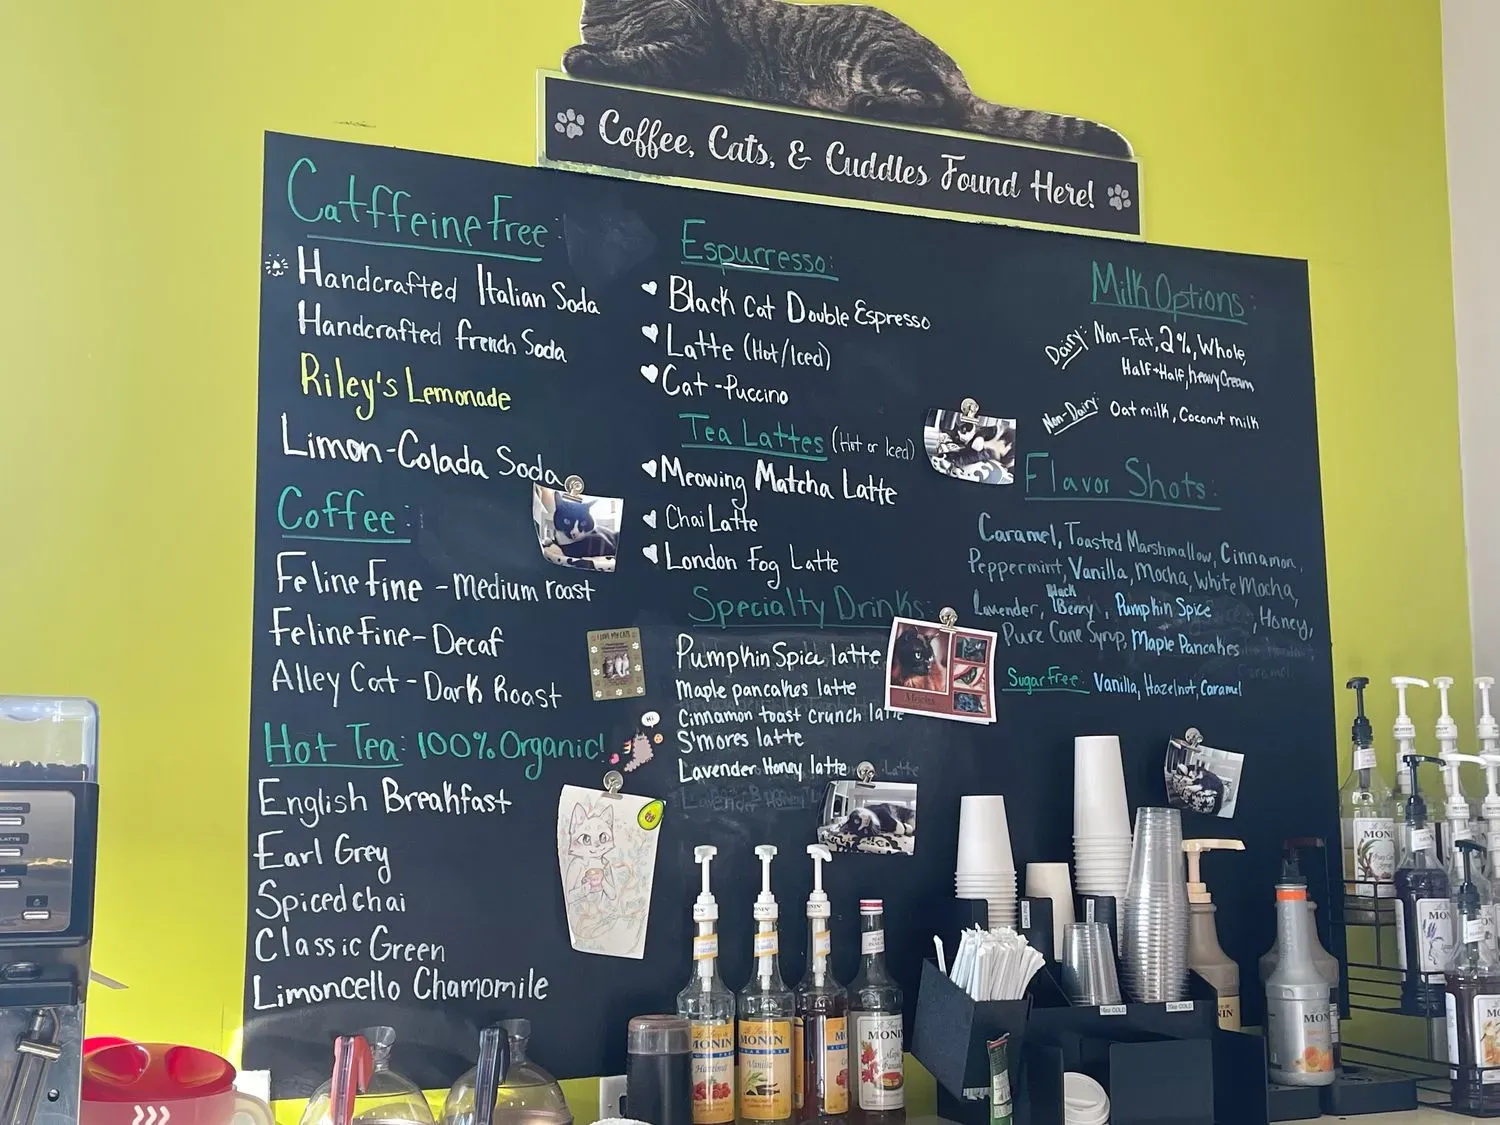 Coffee, Cats, & Cuddles Found Here!
Catffeine Free:
Handcrafted Italian Soda
Handcrafted French Soda
Riley's Lemonade
Limon-Colada Soda
Coffee:
Feline Fine - Medium roast
Feline Fine - Decaf
Alley Cat - Dark Roast
Hot Tea: 100% Organic!
English Breakfast
Earl Grey
Spiced chai
Classic Green
Limoncello Chamomile
Espurresso:
Black Cat Double Espresso
Latte (Hot/Iced)
Cat-Puccino
Tea Lattes (Hot or Iced)
Meowing Matcha Latte
Chai Latte
London Fog Latte
Specialty Drinks:
Pumpkin Spice latte
Maple pancakes latte
Cinnamon toast crunch latte
S'mores latte
Lavender Honey latte
Milk Options:
Dairy: Non-Fat, 2%, Whole,
Half+Half, heavy Cream
Non-Dairy: Oat milk, Coconut milk
Flavor Shots:
Caramel, Toasted Marshmallow, Cinnamon,
Peppermint, Vanilla, Mocha, White Mocha,
Lavender, Black Berry, Pumpkin Spice, Honey,
Pure Cane Syrup, Maple Pancakes
Sugar Free: Vanilla, Hazelnut, Caramel
I LOVE MY CATS
Hi
MONIN
Hazelnut
MONIN
Vanilla
MONIN
MONIN
Maple
Pancake
MONIN
MONIN